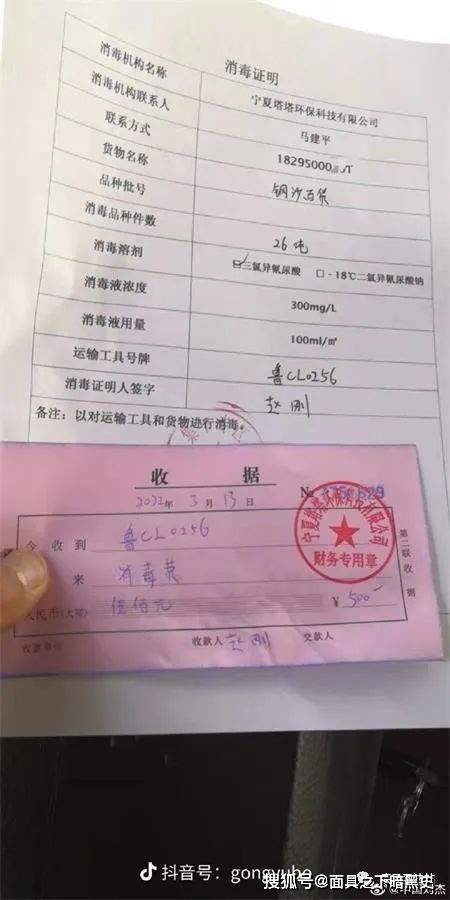 消毒证明
消毒机构名称 宁夏塔塔环保科技有限公司
消毒机构联系人 马建平
联系方式 18295000
货物名称
品种批号
消毒品种件数 26吨
消毒溶剂 ☑三氯异氰尿酸 □-18℃二氯异氰尿酸钠
消毒液浓度 300mg/L
消毒液用量 100ml/㎡
运输工具号牌 鲁CL0256
消毒证明人签字 赵刚
备注：以对运输工具和货物进行消毒。
收 据
2022年 3月 13日 №
今收到 鲁CL0256
来 消毒费
人民币(大写) 伍佰元 ¥ 500
收款单位 收款人 赵刚 交款人
第二联收据
财务专用章
抖音号：gongyihe
搜狐号@面具之下暗黑史
@中国刘杰